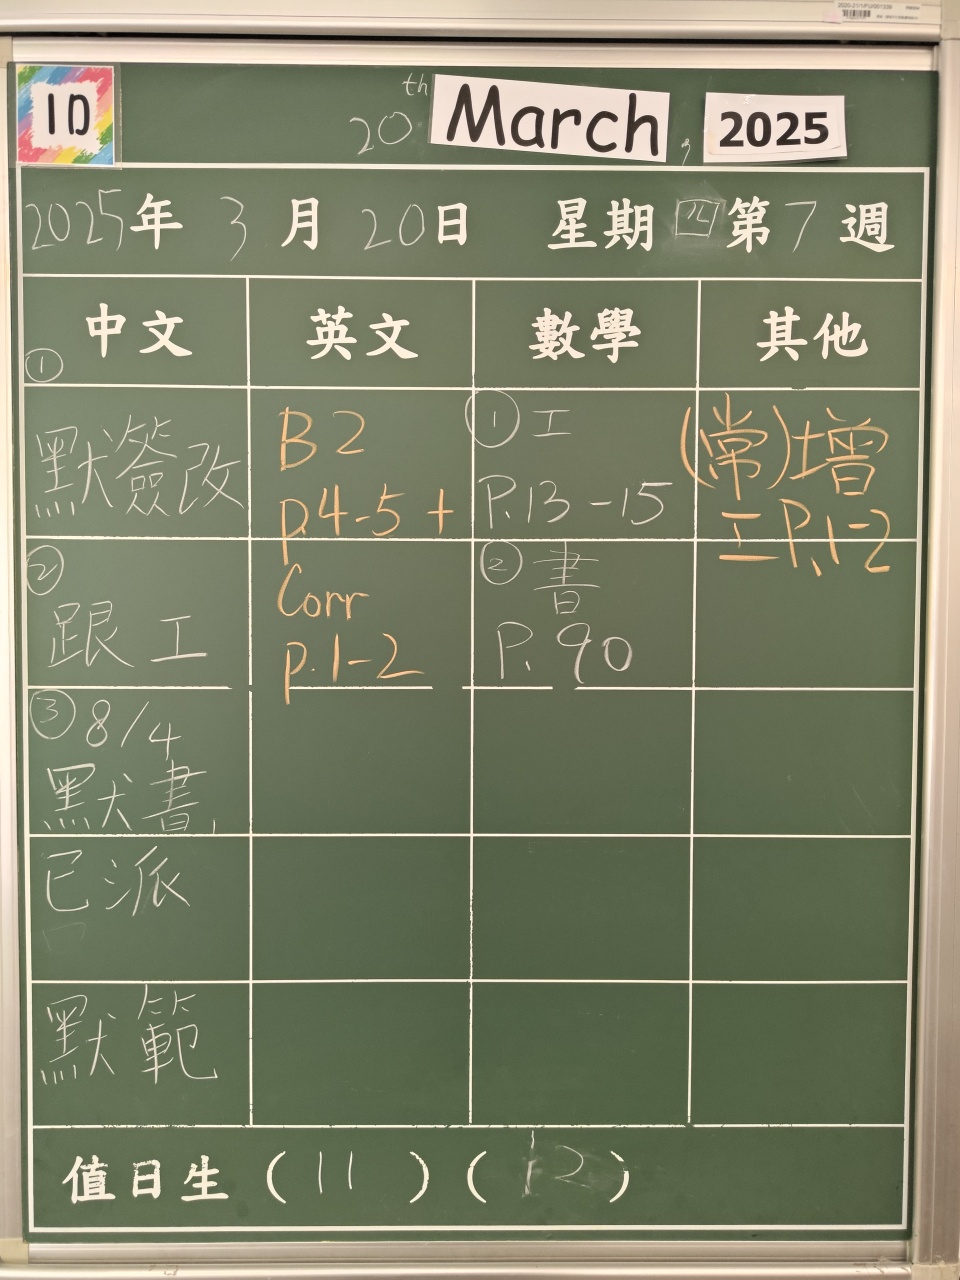 1D
20th March, 2025
2025年 3月 20日 星期四 第7週
中文 英文 數學 其他
①
默簽改
②
跟工
③ 8/4
默書,
已派
默範
B2
p.4-5 +
Corr
p.1-2
① 工
P.13-15
② 書
P.90
(常)增
工P.1-2
值日生 ( 11 ) ( 12 )